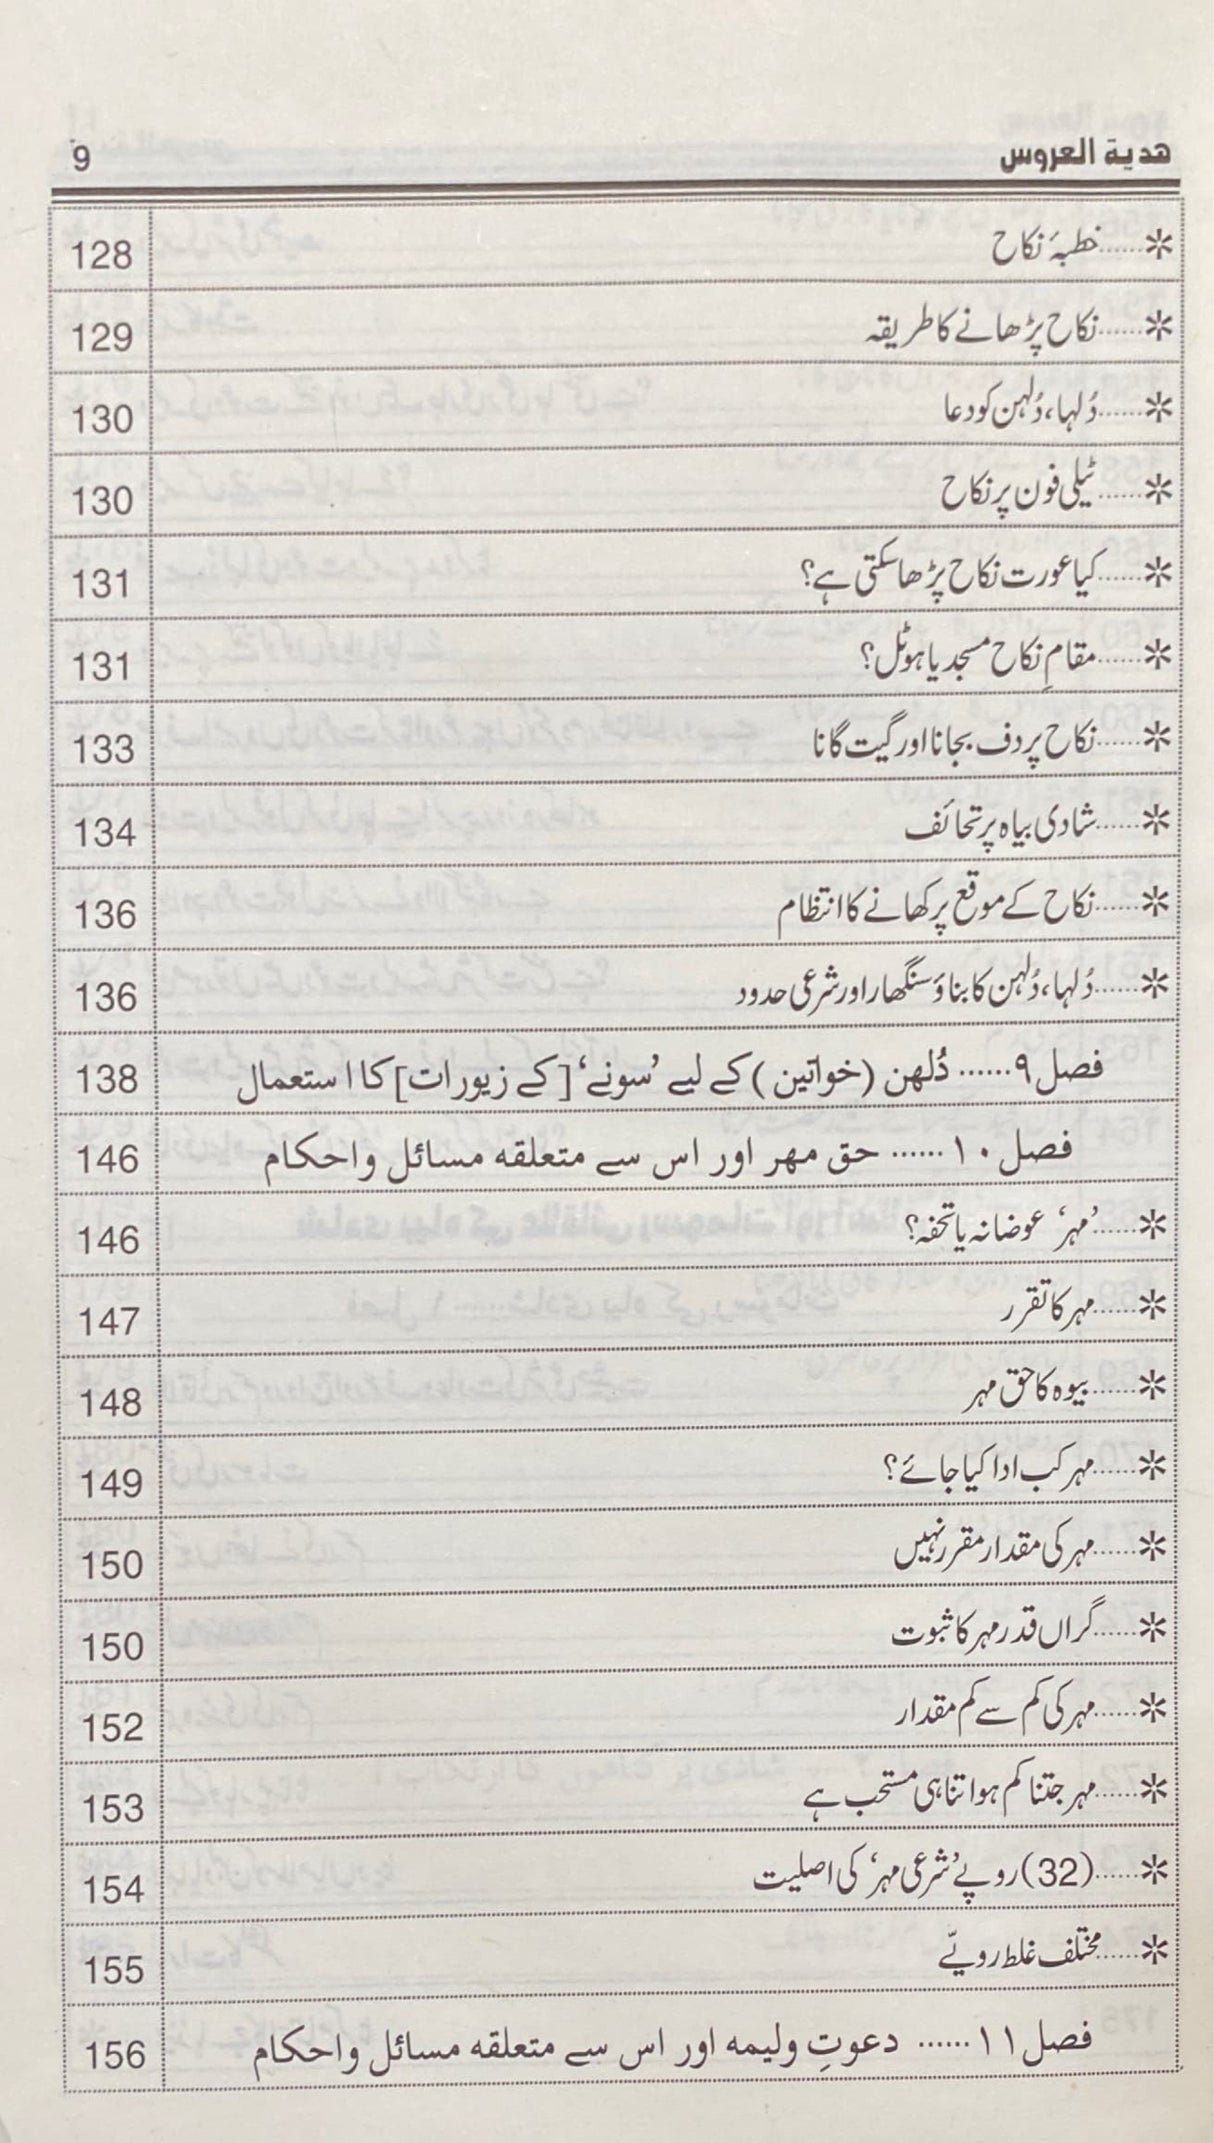 هدية العروس 9
*......خطبۂ نکاح 128
*......نکاح پڑھانے کا طریقہ 129
*......دُلہا، دُلہن کو دعا 130
*......ٹیلی فون پر نکاح 130
*......کیا عورت نکاح پڑھا سکتی ہے؟ 131
*......مقامِ نکاح مسجد یا ہوٹل؟ 131
*......نکاح پر دف بجانا اور گیت گانا 133
*......شادی بیاہ پر تحائف 134
*......نکاح کے موقع پر کھانے کا انتظام 136
*......دُلہا، دُلہن کا بناؤ سنگھار اور شرعی حدود 136
فصل ۹...... دُلھن (خواتین) کے لیے ’سونے‘ [کے زیورات] کا استعمال 138
فصل ۱۰...... حق مھر اور اس سے متعلقہ مسائل و احکام 146
*......’مہر‘ عوضانہ یا تحفہ؟ 146
*......مہر کا تقرر 147
*......بیوہ کا حق مہر 148
*......مہر کب ادا کیا جائے؟ 149
*......مہر کی مقدار مقرر نہیں 150
*......گراں قدر مہر کا ثبوت 150
*......مہر کی کم سے کم مقدار 152
*......مہر جتنا کم ہو اتنا ہی مستحب ہے 153
*......(32) روپے ’شرعی مہر‘ کی اصلیت 154
*......مختلف غلط رویّے 155
فصل ۱۱...... دعوتِ ولیمہ اور اس سے متعلقہ مسائل و احکام 156